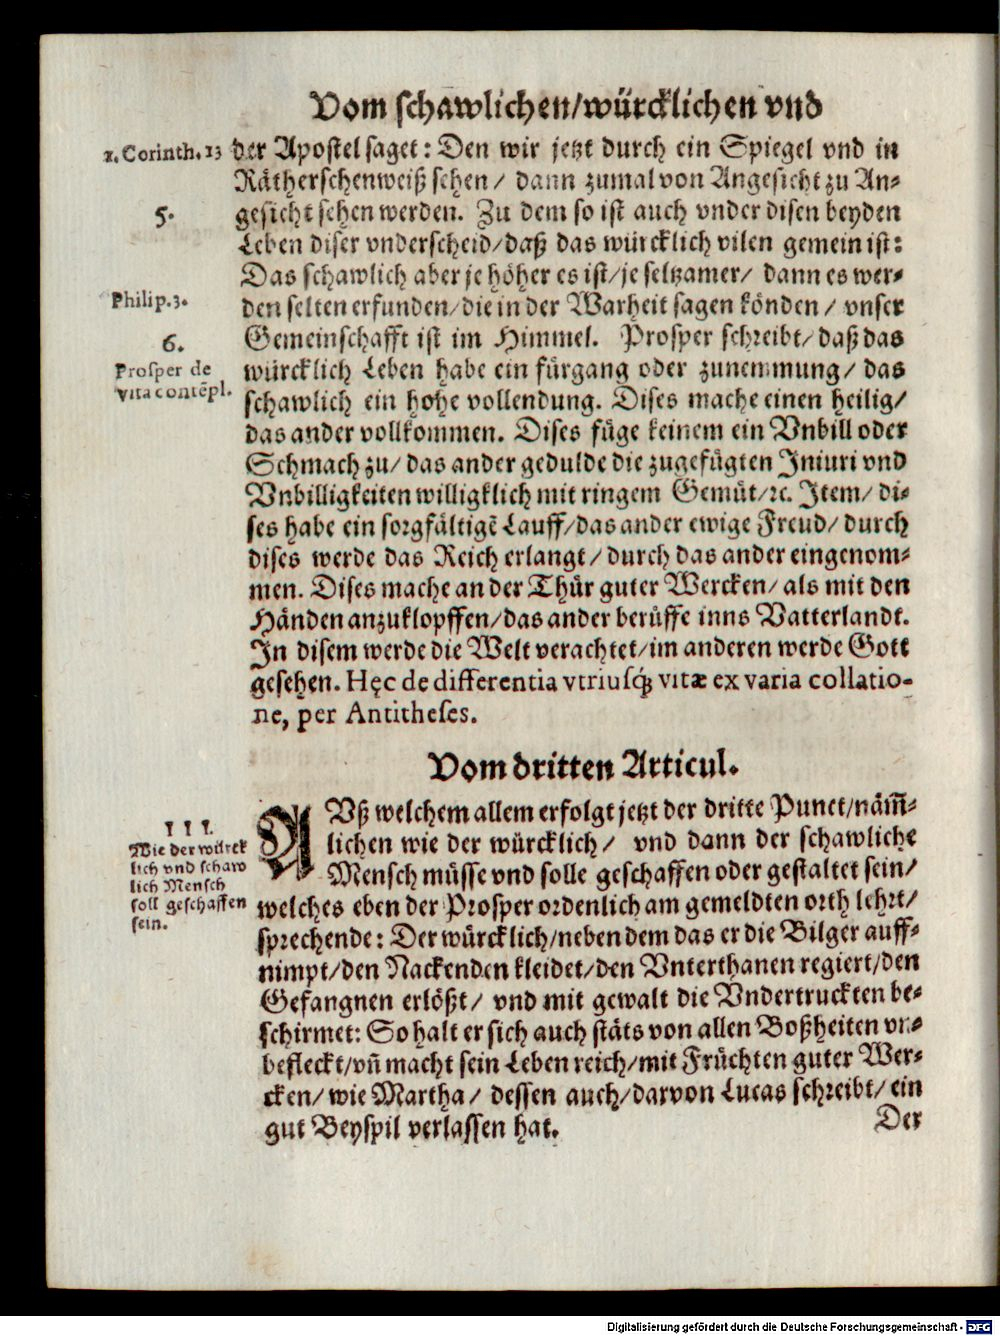 Vom schawlichen/würcklichen vnd
1. Corinth. 13
der Apostel saget: Den wir jetzt durch ein Spiegel vnd in
Rätherschenweiß sehen/ dann zumal von Angesicht zu An-
5.
gesicht sehen werden. Zu dem so ist auch vnder disen beyden
Leben diser vnderscheid/daß das würcklich vilen gemein ist:
Das schawlich aber je höher es ist/je seltzamer/ dann es wer-
Philip. 3.
den selten erfunden/die in der Warheit sagen könden/ vnser
6.
Gemeinschafft ist im Himmel. Prosper schreibt/daß das
Prosper de
vita contẽpl.
würcklich Leben habe ein fürgang oder zunemmung/ das
schawlich ein hohe vollendung. Dises mache einen heilig/
das ander vollkommen. Dises füge keinem ein Vnbill oder
Schmach zu/ das ander gedulde die zugefügten Iniuri vnd
Vnbilligkeiten willigklich mit ringem Gemüt/ꝛc. Item/ di-
ses habe ein sorgfältigẽ Lauff/das ander ewige Freud/durch
dises werde das Reich erlangt/durch das ander eingenom-
men. Dises mache an der Thür guter Wercken/als mit den
Händen anzuklopffen/das ander berüffe inns Vatterlandt.
In disem werde die Welt verachtet/im anderen werde Gott
gesehen. Hęc de differentia vtriusq́; vitæ ex varia collatio-
ne, per Antitheses.
Vom dritten Articul.
III.
Wie der würck
lich vnd schaw
lich Mensch
soll geschaffen
sein.
AVß welchem allem erfolgt jetzt der dritte Punct/näm̃-
lichen wie der würcklich/ vnd dann der schawliche
Mensch müsse vnd solle geschaffen oder gestaltet sein/
welches eben der Prosper ordenlich am gemeldten orth lehrt/
sprechende: Der würcklich/neben dem das er die Bilger auff-
nimpt/den Nackenden kleidet/den Vnterthanen regiert/den
Gefangnen erlößt/ vnd mit gewalt die Vndertruckten be-
schirmet: So halt er sich auch stäts von allen Boßheiten vn-
befleckt/vñ macht sein Leben reich/mit Früchten guter Wer-
cken/ wie Martha/ dessen auch/darvon Lucas schreibt/ ein
gut Beyspil verlassen hat.
Der
Digitalisierung gefördert durch die Deutsche Forschungsgemeinschaft - DFG